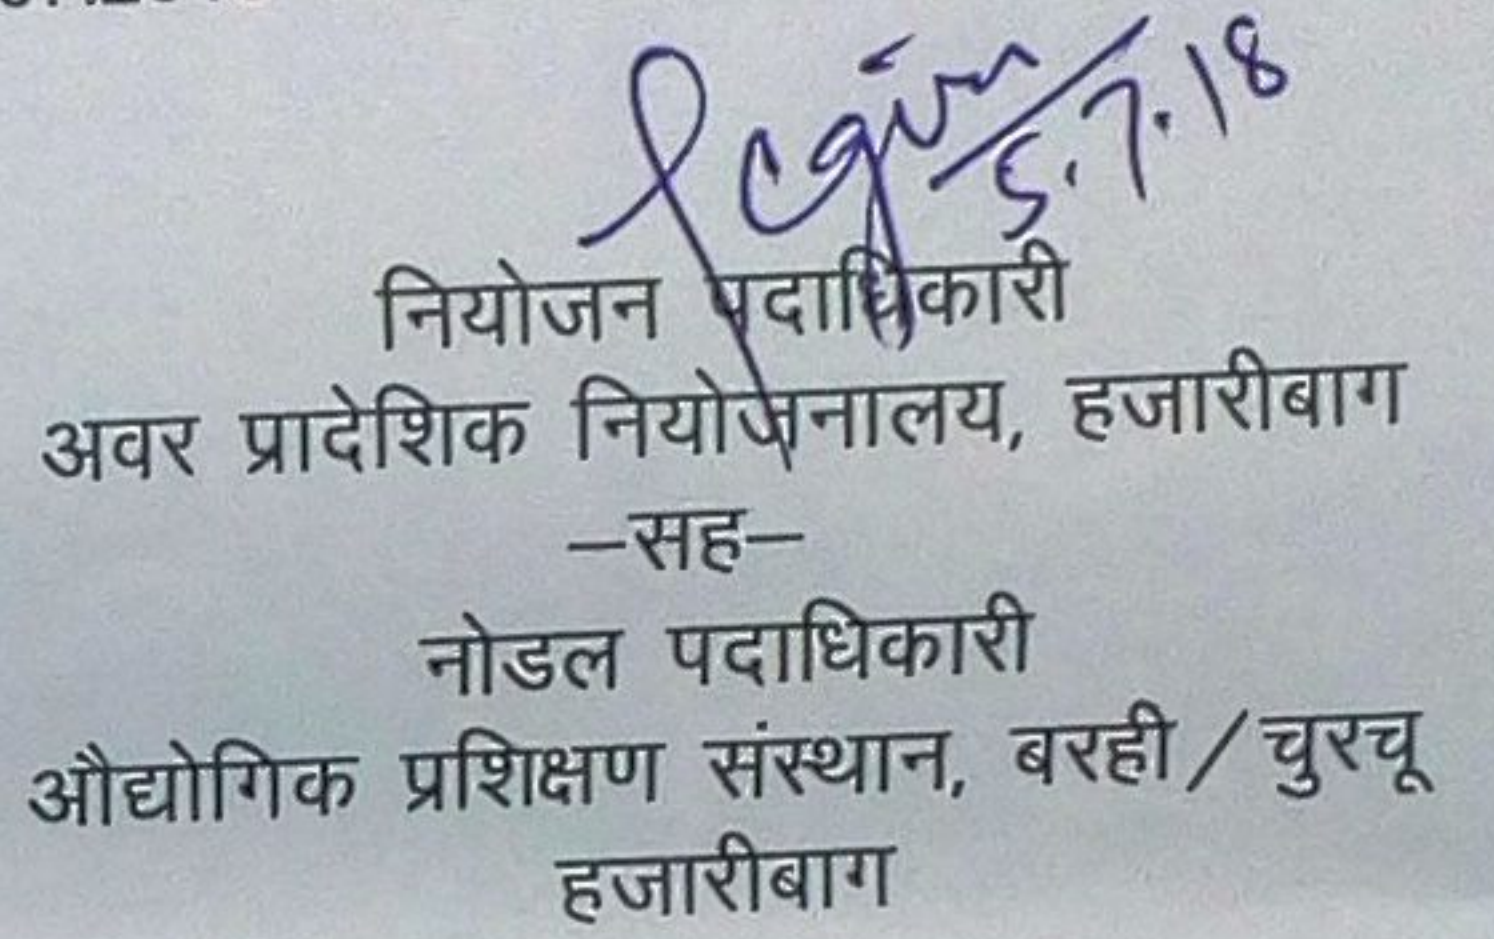 5.7.18
नियोजन पदाधिकारी
अवर प्रादेशिक नियोजनालय, हजारीबाग
–सह–
नोडल पदाधिकारी
औद्योगिक प्रशिक्षण संस्थान, बरही/चुरचू
हजारीबाग